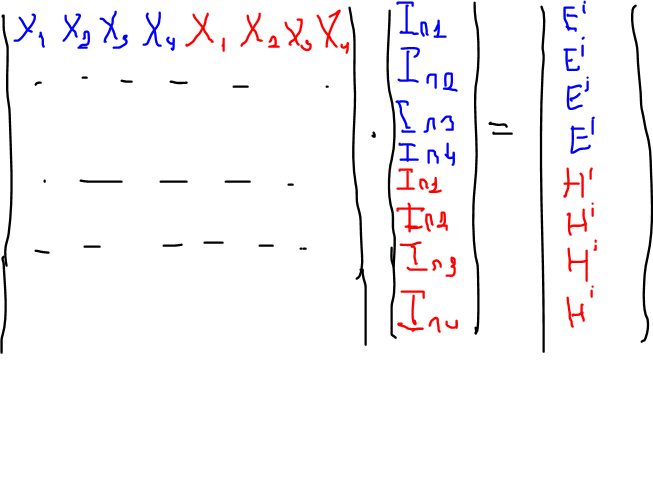 X₁ X₂ X₃ X₄ X₁ X₂ X₃ X₄
- - - - - -
- - - - -
- - - - - -
·
I_n1
I_n2
I_n3
I_n4
I_n1
I_n2
I_n3
I_n4
=
E^i
E^i
E^i
E^i
H^i
H^i
H^i
H^i